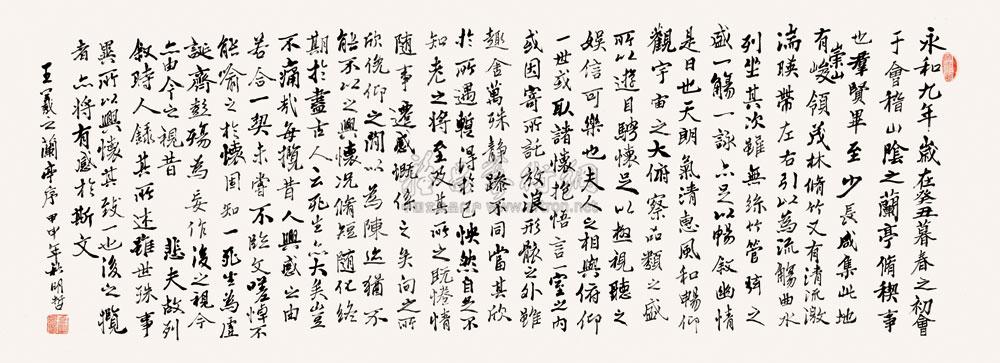 永和九年歲在癸丑暮春之初會
于會稽山陰之蘭亭脩稧事
也羣賢畢至少長咸集此地
有崇山峻領茂林脩竹又有清流激
湍暎帶左右引以為流觴曲水
列坐其次雖無絲竹管弦之
盛一觴一詠亦足以暢敘幽情
是日也天朗氣清惠風和暢仰
觀宇宙之大俯察品類之盛
所以遊目騁懷足以極視聽之
娛信可樂也夫人之相與俯仰
一世或取諸懷抱悟言一室之內
或因寄所託放浪形骸之外雖
趣舍萬殊靜躁不同當其欣
於所遇暫得於己怏然自足不
知老之將至及其所之既惓情
隨事遷感慨係之矣向之所
欣俛仰之間以為陳迹猶不
能不以之興懷況脩短隨化終
期於盡古人云死生亦大矣豈
不痛哉每攬昔人興感之由
若合一契未嘗不臨文嗟悼不
能喻之於懷固知一死生為虛
誕齊彭殤為妄作後之視今
亦由今之視昔 悲夫故列
敘時人錄其所述雖世殊事
異所以興懷其致一也後之攬
者亦將有感於斯文
王羲之蘭亭序 甲申年 明哲